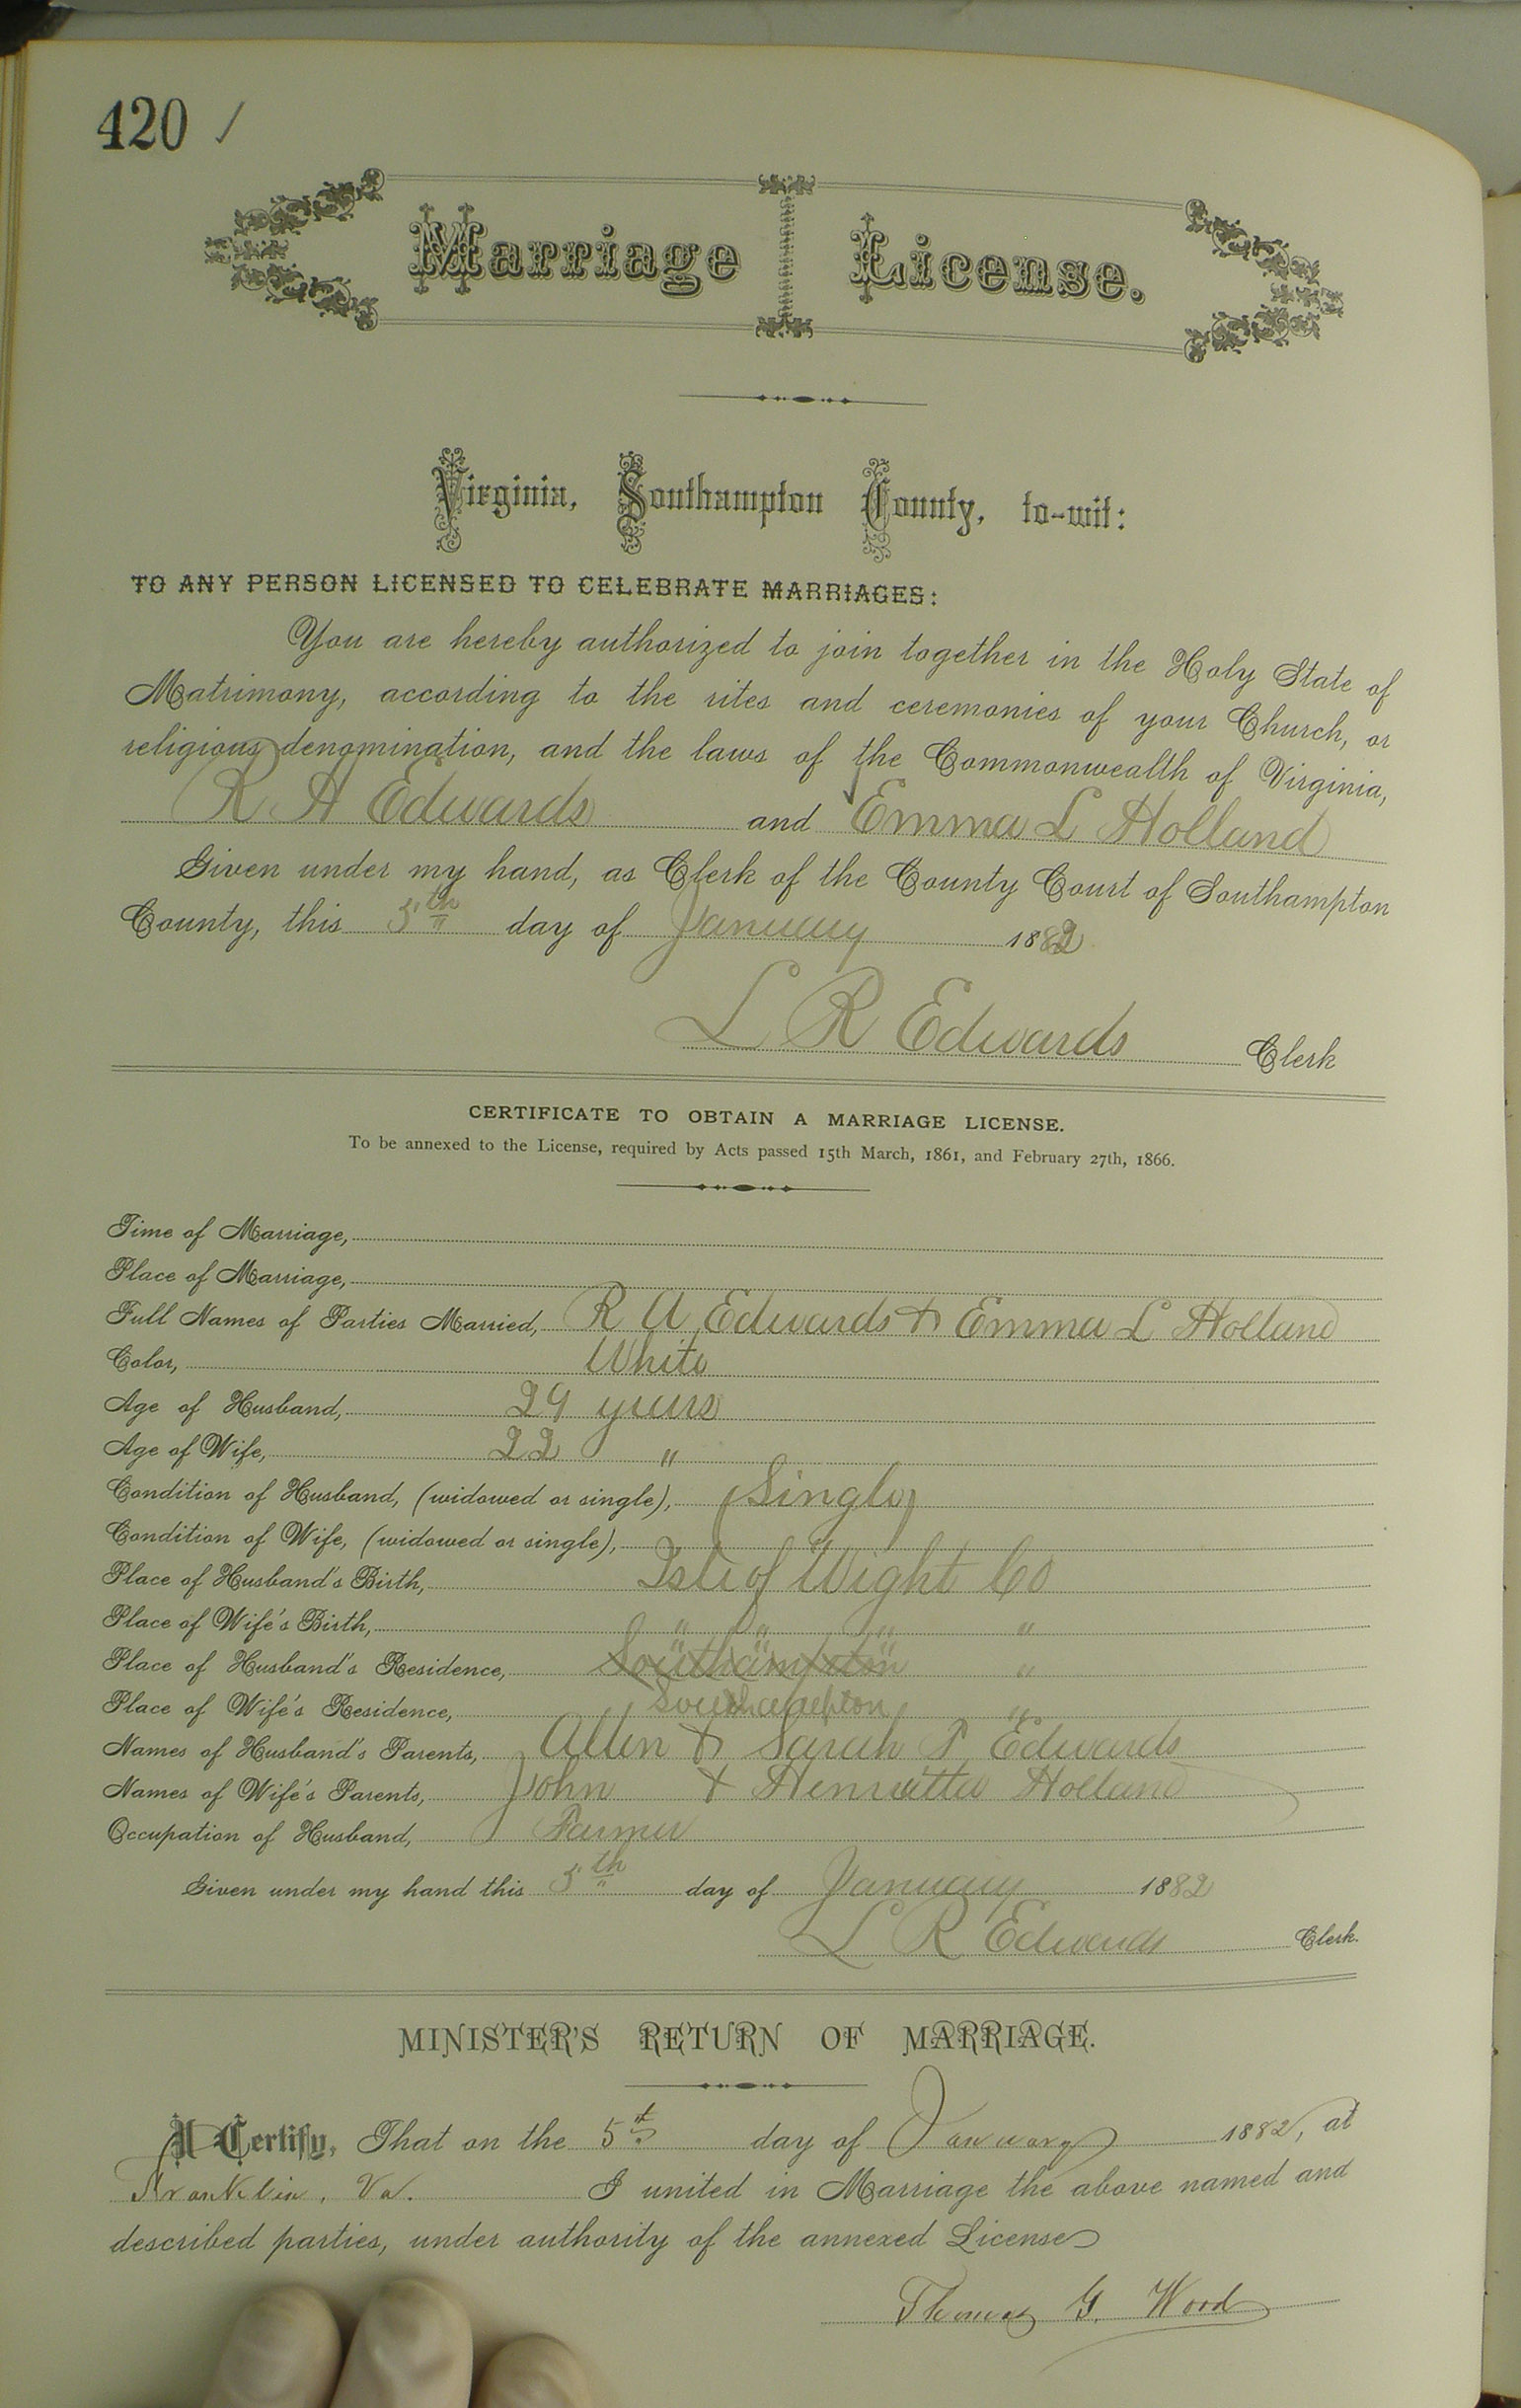 420 /
Marriage License.
Virginia, Southampton County, to-wit:
TO ANY PERSON LICENSED TO CELEBRATE MARRIAGES:
You are hereby authorized to join together in the Holy State of
Matrimony, according to the rites and ceremonies of your Church, or
religious denomination, and the laws of the Commonwealth of Virginia,
R A Edwards and Emma L Holland
Given under my hand, as Clerk of the County Court of Southampton
County, this 5th day of January 1882
L R Edwards Clerk
CERTIFICATE TO OBTAIN A MARRIAGE LICENSE.
To be annexed to the License, required by Acts passed 15th March, 1861, and February 27th, 1866.
Time of Marriage,
Place of Marriage,
Full Names of Parties Married, R A Edwards & Emma L Holland
Color, White
Age of Husband, 29 years
Age of Wife, 22 "
Condition of Husband, (widowed or single), Single
Condition of Wife, (widowed or single),
Place of Husband's Birth, Isle of Wight Co
Place of Wife's Birth, " " " "
Place of Husband's Residence, Southampton " " " "
Place of Wife's Residence, Southampton "
Names of Husband's Parents, Allen & Sarah P Edwards
Names of Wife's Parents, John & Henrietta Holland
Occupation of Husband, Farmer
Given under my hand this 5th day of January 1882
L R Edwards Clerk.
MINISTER'S RETURN OF MARRIAGE.
I Certify, That on the 5th day of January 1882, at
Franklin, Va. I united in Marriage the above named and
described parties, under authority of the annexed License
Thomas G. Wood